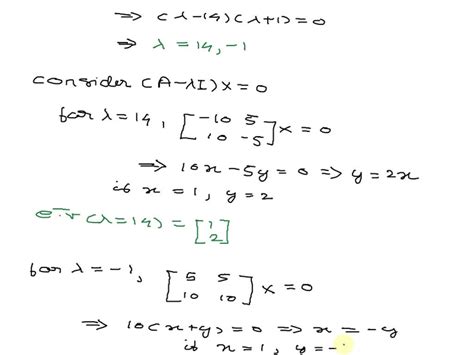 ⇒ (λ-14)(λ+1)=0
⇒ λ = 14, -1
consider (A-λI)x = 0
for λ=14, [-10 5
10 -5] x = 0
⇒ 10x - 5y = 0 ⇒ y = 2x
if x = 1, y = 2
e.v (λ=14) = [1
2]
for λ = -1, [5 5
10 10] x = 0
⇒ 10(x+y) = 0 ⇒ x = -y
if x = 1, y = -